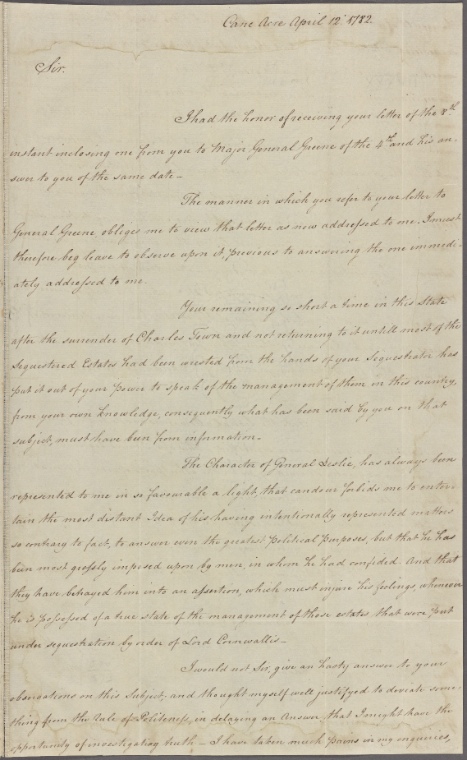 Cane Acre April 12th 1782.
Sir.
I had the honor of receiving your letter of the 8th
instant inclosing me from you to Major General Greene of the 4th and his an-
swer to you of the same date –
The manner in which you refer to your letter to
General Greene obliges me to view that letter as now addressed to me. I must
therefore beg leave to observe upon it, previous to answering the one immedi-
ately addressed to me
Your remaining so short a time in this State
after the surrender of Charles Town and not returning to it untill most of the
Sequestered Estates had been wrested from the hands of your Sequestrator has
put it out of your power to speak of the management of them in this country,
from your own knowledge, consequently what has been said by you on that
subject, must have been from information –
The Character of General Leslie, has always been
represented to me in so favourable a light, that candour forbids me to enter-
tain the most distant Idea of his having intentionally represented matters
so contrary to fact, to answer even the greatest political purposes, but that he has
been most grossly imposed upon by men, in whom he had confided. And that
they have betrayed him into an assertion, which must injure his feelings, whenever
he is possessed of a true state of the management of those estates that were put
under sequestration by order of Lord Cornwallis –
I would not Sir, give an hasty answer to your
observations on this Subject, and thought myself well justifyed to deviate some-
thing from the rule of Politeness, in delaying an Answer, that I might have the
opportunity of investigating truth – I have taken much pains in my enquiries,